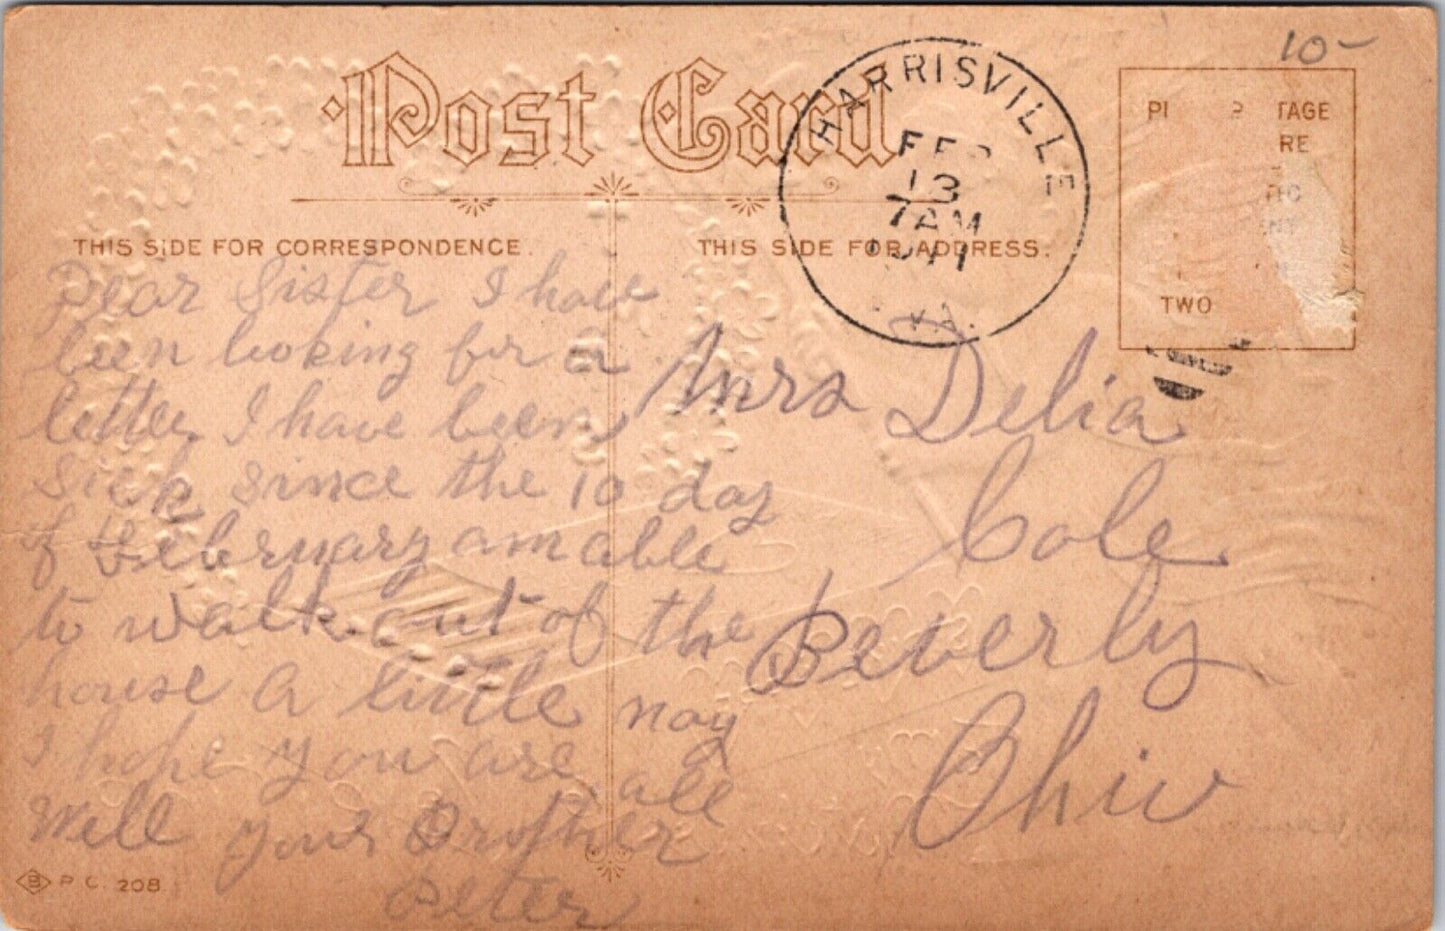 10-
Post Card
HARRISVILLE
FEB
13
7 AM
1911
VA.
TAGE
RE
TWO
THIS SIDE FOR CORRESPONDENCE.
THIS SIDE FOR ADDRESS.
Dear Sister I have
been looking for a
letter I have been
sick since the 10 day
of February am able
to walk out of the
house a little nay
I hope you are all
Well your Brother
Peter
Mrs Delia
Cole
Beverly
Ohio
B P. C. 208.